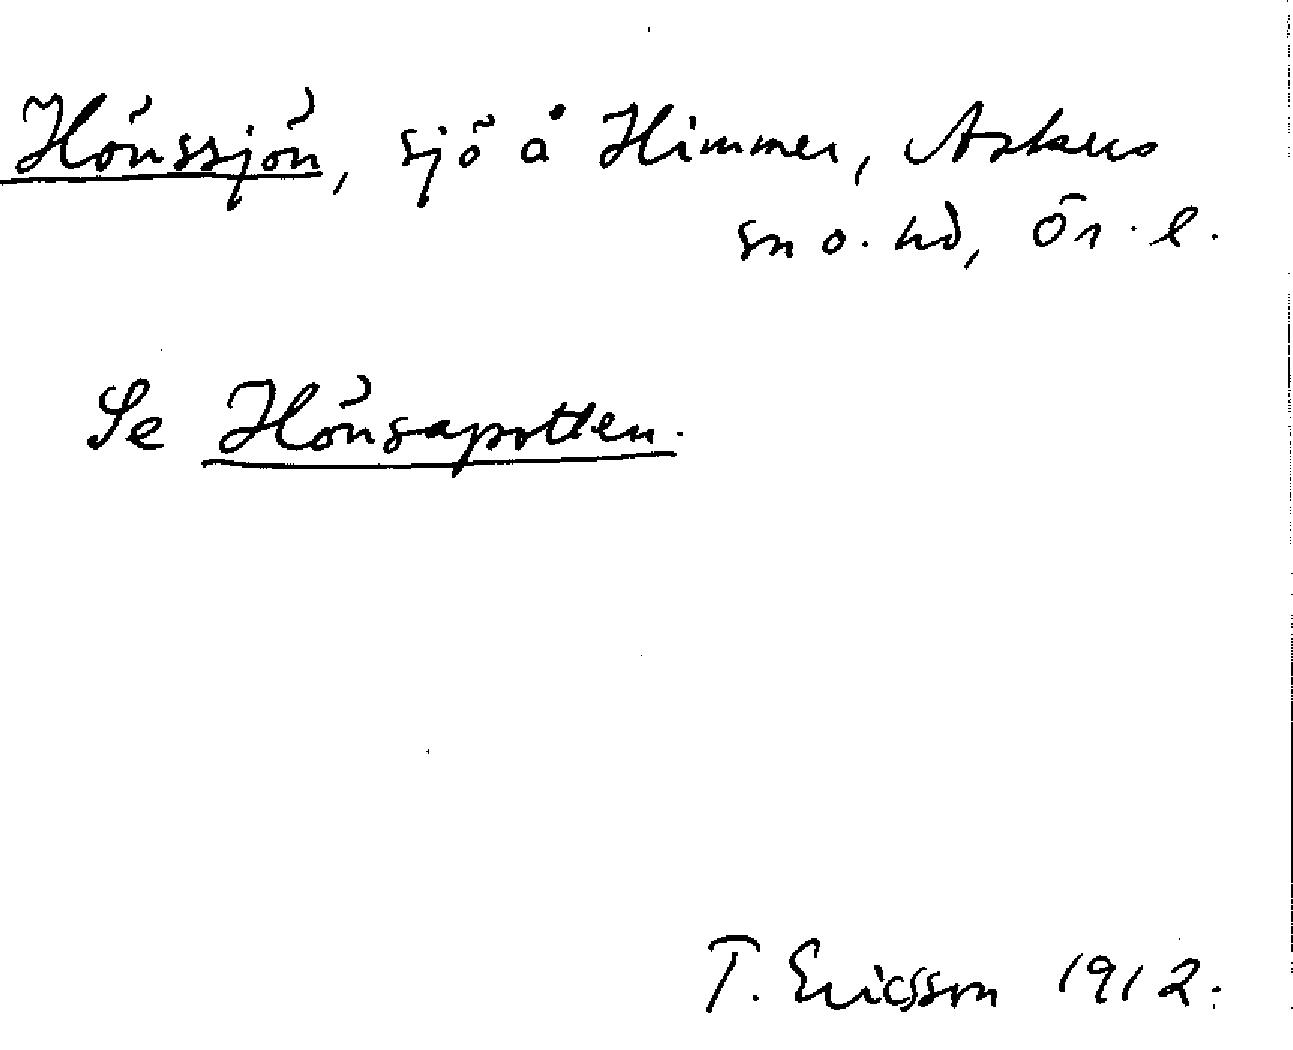 Hönssjön, sjö å Himmer, Askers
sn o. hd, Ör. l.
Se Hönsapotten.
T. Ericsson 1912.